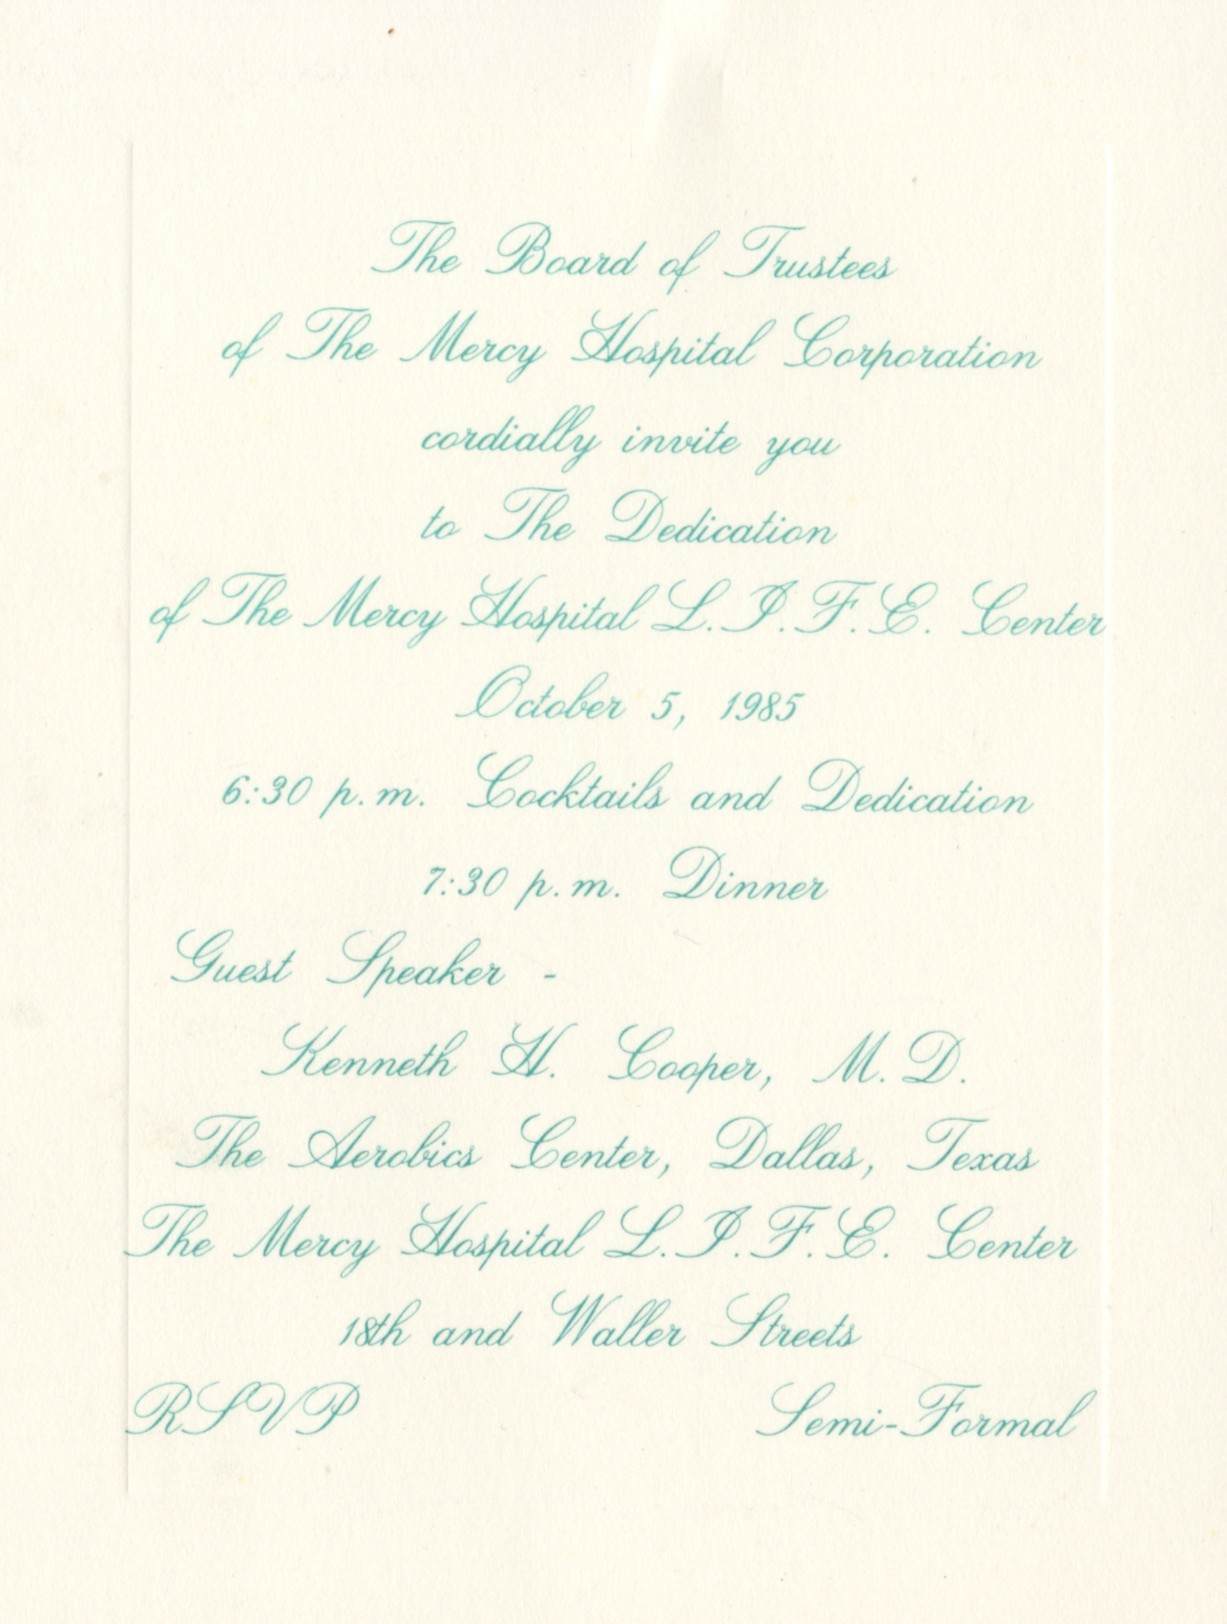 The Board of Trustees
of The Mercy Hospital Corporation
cordially invite you
to The Dedication
of The Mercy Hospital L.I.F.E. Center
October 5, 1985
6:30 p.m. Cocktails and Dedication
7:30 p.m. Dinner
Guest Speaker -
Kenneth H. Cooper, M.D.
The Aerobics Center, Dallas, Texas
The Mercy Hospital L.I.F.E. Center
18th and Waller Streets
RSVP Semi-Formal